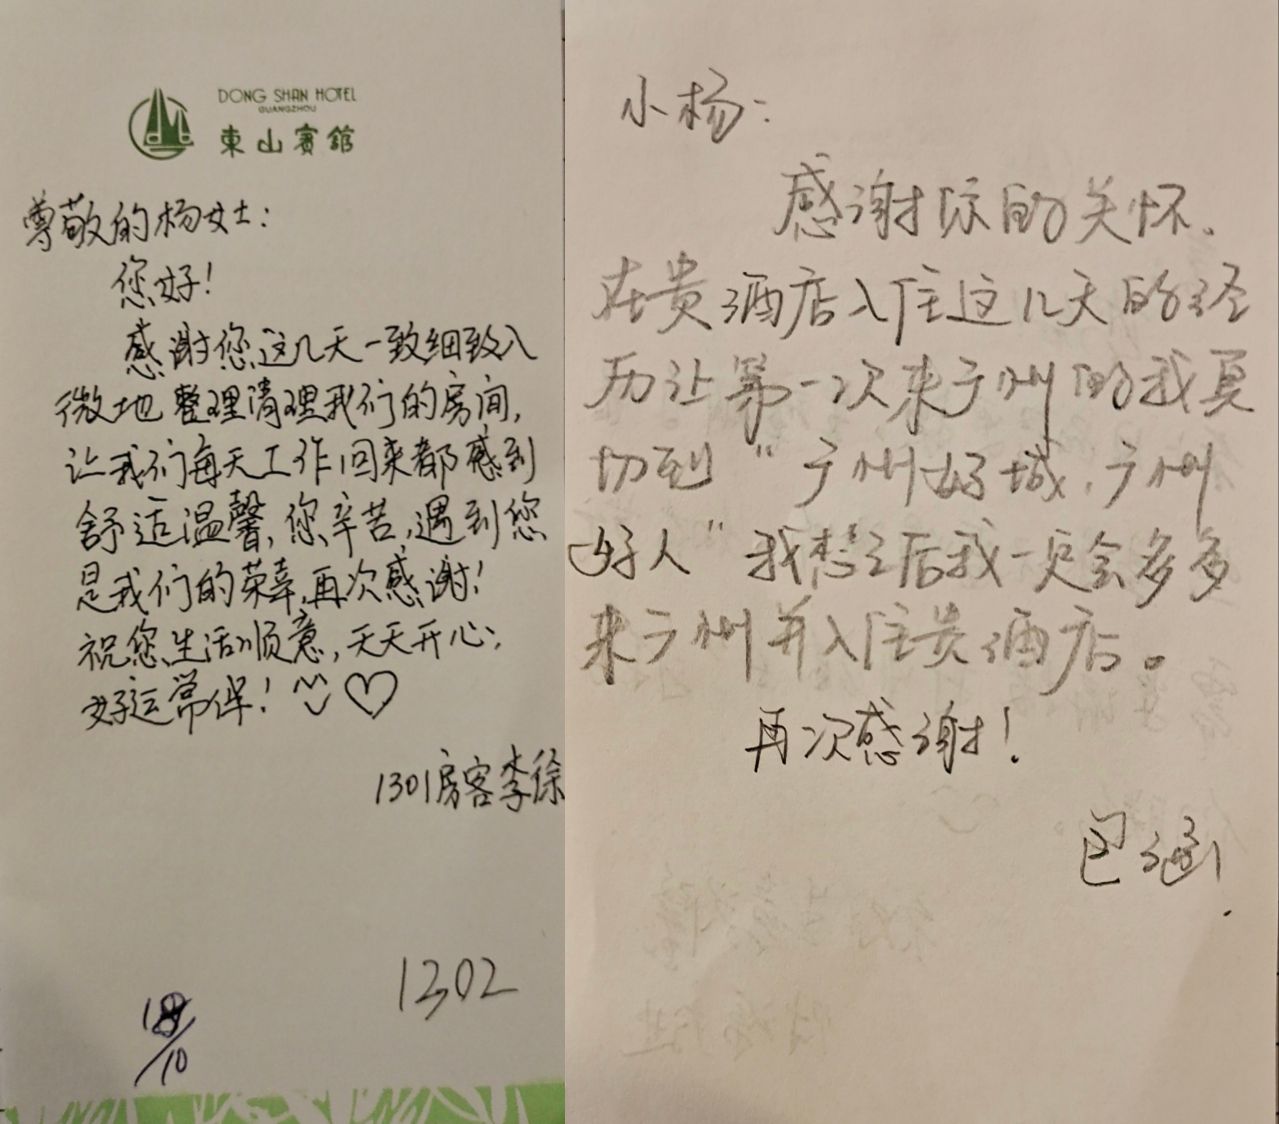 DONG SHAN HOTEL
GUANGZHOU
東山賓館
尊敬的杨女士：
您好！
感谢您这几天一致细致入
微地整理清理我们的房间，
让我们每天工作回来都感到
舒适温馨，您辛苦，遇到您
是我们的荣幸，再次感谢！
祝您生活顺意，天天开心，
好运常伴！
1301房客李徐
1302
小杨：
感谢你的关怀。
在贵酒店入住这几天的经
历让第一次来广州的我真
切到“广州好城，广州
好人”我想之后我一定会多多
来广州并入住贵酒店。
再次感谢！